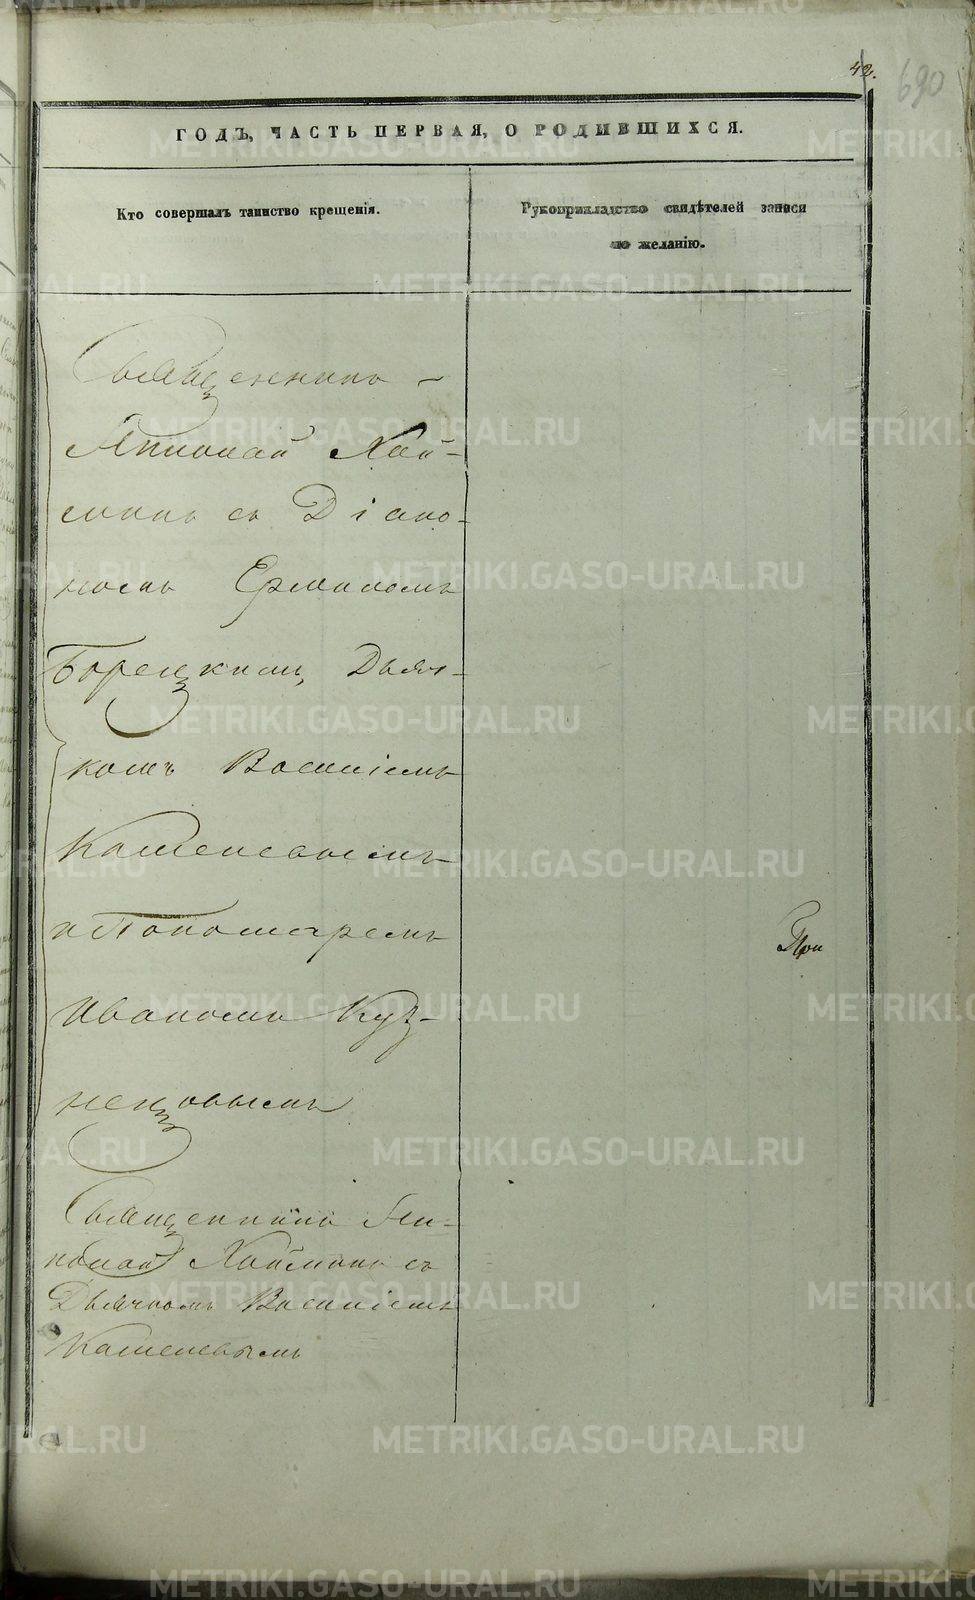 42.
690
ГОДЪ, ЧАСТЬ ПЕРВАЯ, О РОДИВШИХСЯ.
Кто совершалъ таинство крещенія.
Рукоприкладство свидѣтелей записи
по желанію.
Священникъ –
Николай Хай-
минъ съ Діако-
номъ Ермиломъ
Борецкимъ, Дьяч-
комъ Василіемъ
Кашелевымъ
и Пономаремъ
Иваномъ Куз-
нецовымъ
При
Священникъ Ни-
колай Хайминъ съ
Дьячкомъ Василіемъ
Кашелевымъ
METRIKI.GASO-URAL.RU